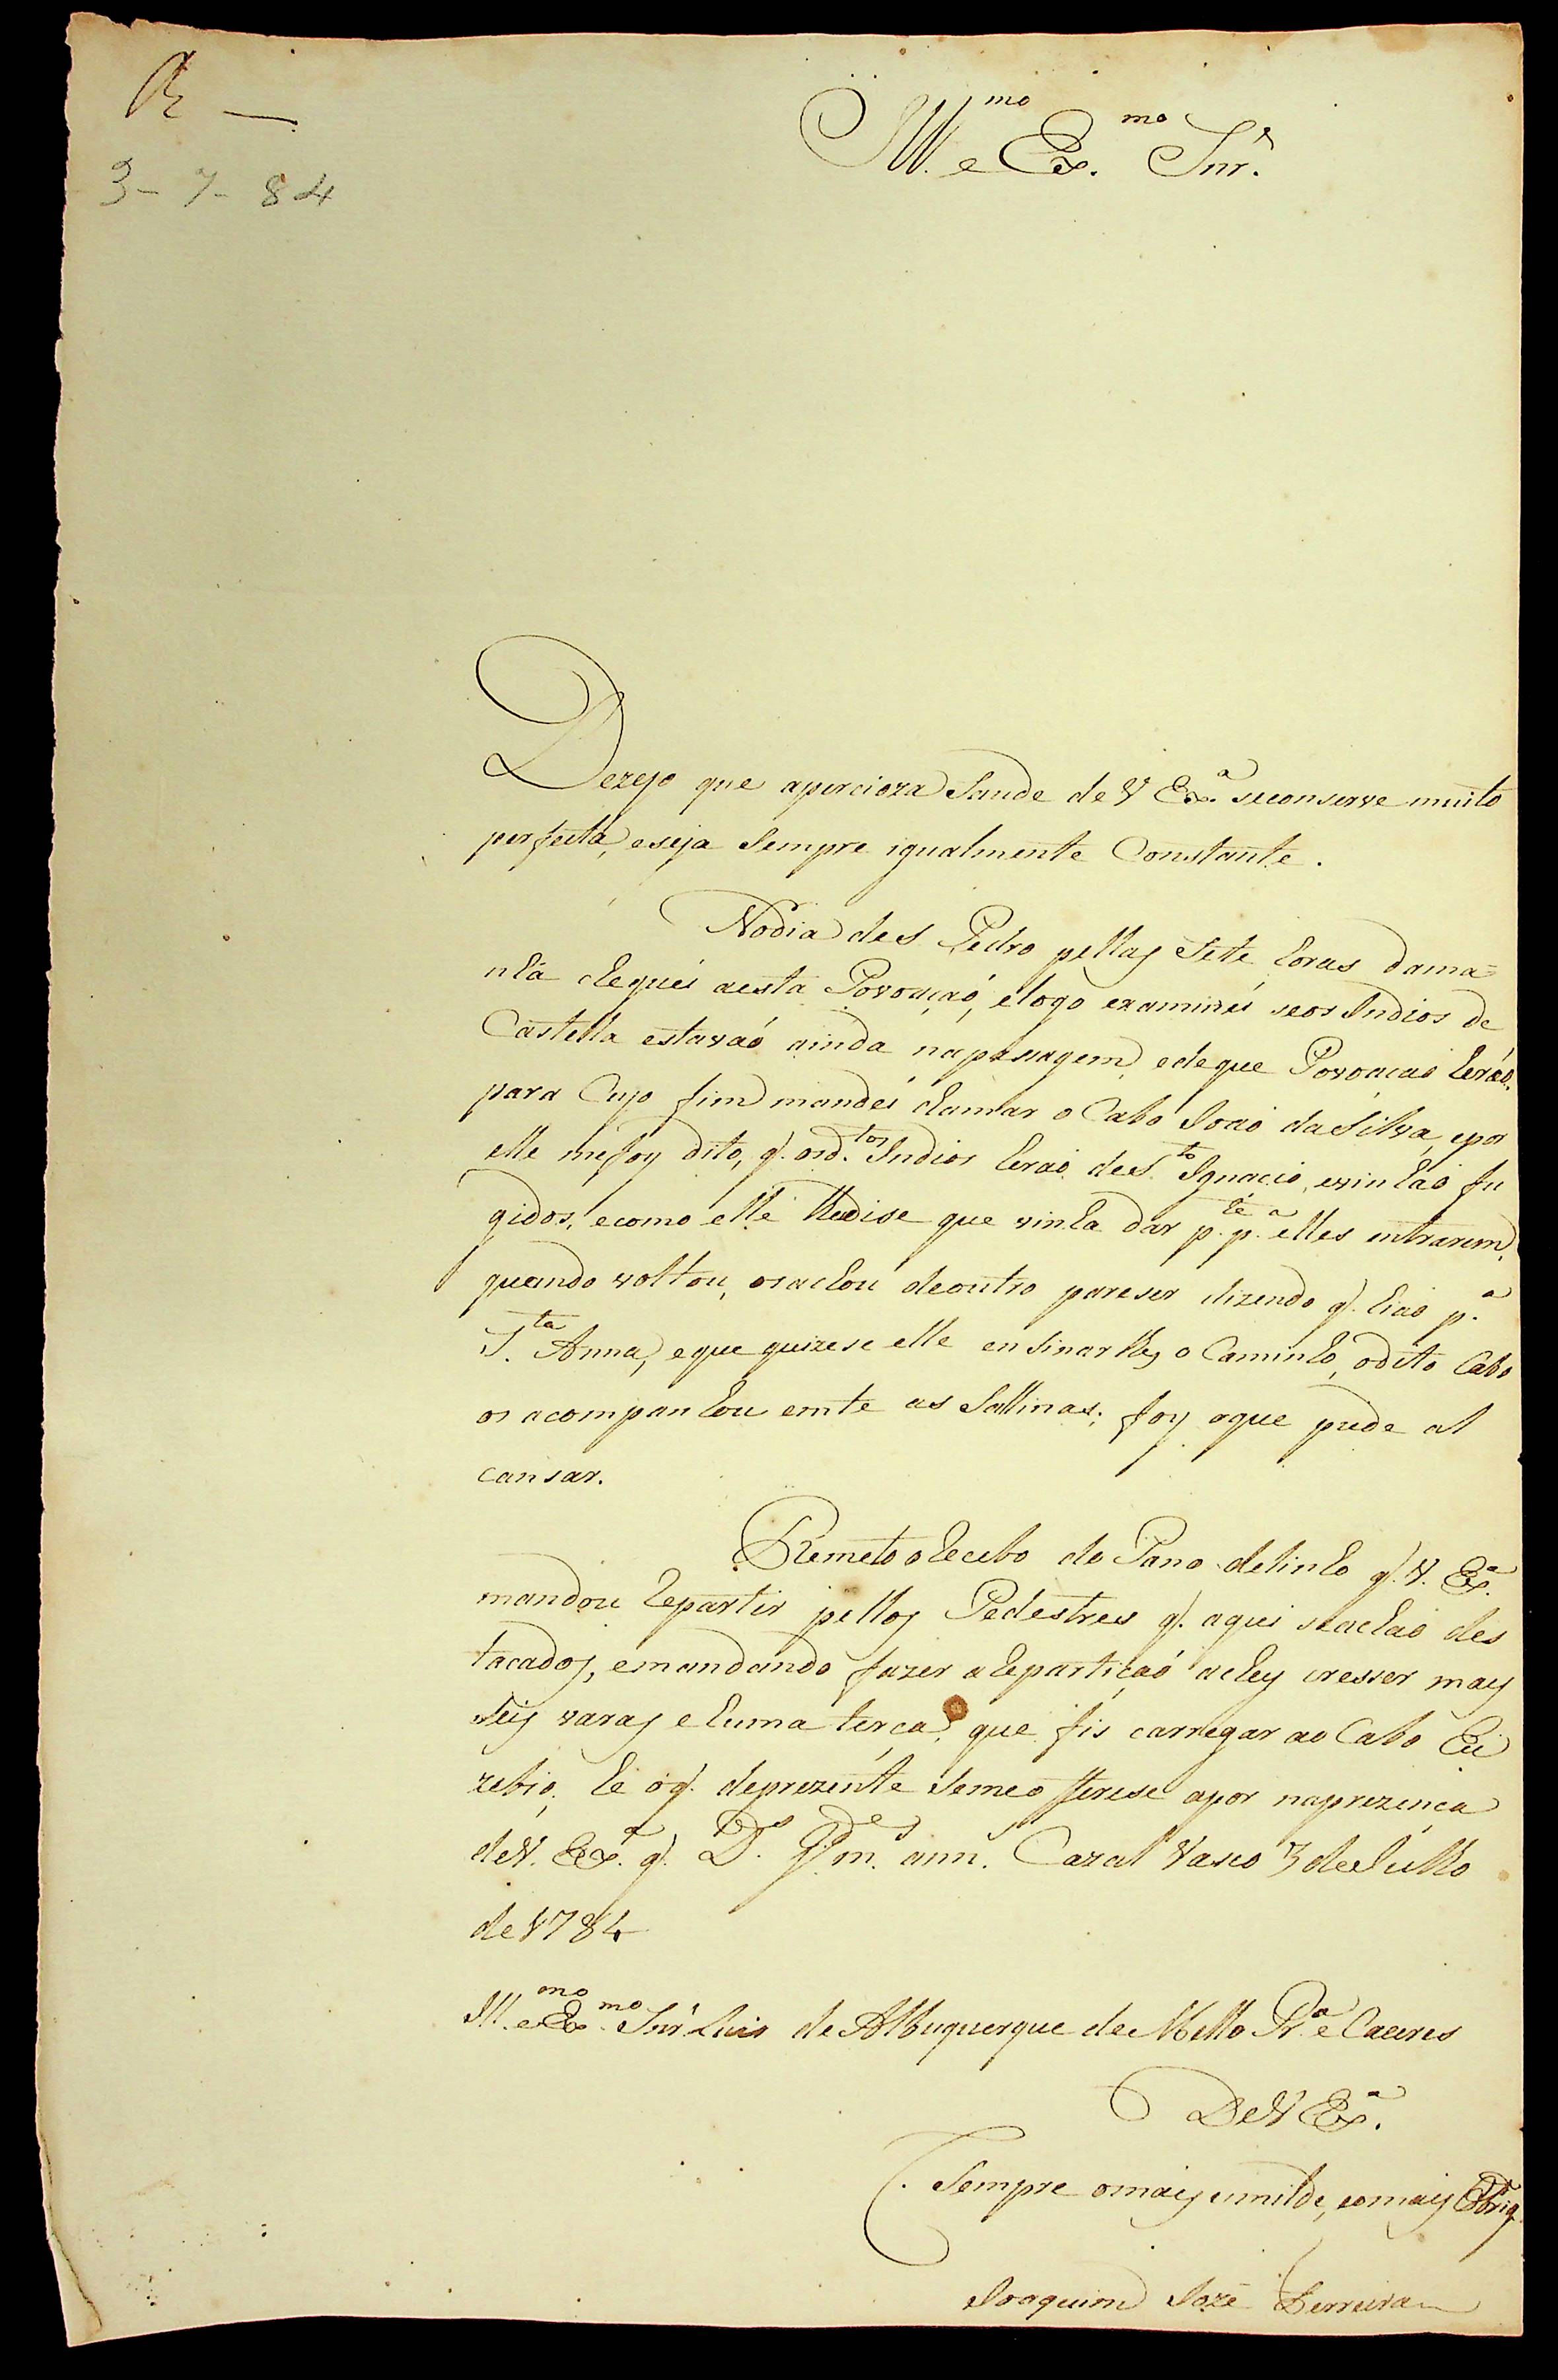 R —
3-7-84
Ill.mo e Ex.mo Snr.
Dezejo que apercioza Saude de V Ex.a seconserve muito
perfeita, eseja Sempre igualmente Constante.
Nodia de S Pedro pellas Sete horas dama=
nhã cheguei aesta Povoaçaó, elogo examinei seos Indios de
Castella estavaó ainda napasagem, edeque Povoaçaó heraó,
para Cujo fim mandei chamar o Cabo Joaó daSilva, epor
elle mefoy dito, q. osd.tos Indios heraó deS.to Ignacio, evinhaó fu
gidos, ecomo elle lhedise que vinha dar p.te p.a elles entrarem,
quando voltou, osachou deoutro pareser dizendo q. hiaó p.a
S.ta Anna, eque quizese elle ensinarlhes o Caminho, odito Cabo
os acompanhou emte as Sallinas; foy oque pude al
cansar.
Remeto o Recibo do Pano delinho q. V. Ex.a
mandou Repartir pellos Pedestres q. aqui seachaó des
tacados, emandando fazer aRepartiçaó achey cresser mays
Seis varas ehuma terça, que fis carregar ao Cabo Eu
zebio; he oq. deprezente Semeofferese apor naprezença
deV. Ex.a q. D.s G.de m.s ann.s Cazal Vasco 3 deJulho
de 1784
Ill.mo e Ex.mo Snr Luis de Albuquerque de Mello Pr.a e Caceres
DeV Ex.a
Sempre omays umilde, eomays Obrig.
Joaquim Jozé Ferreira